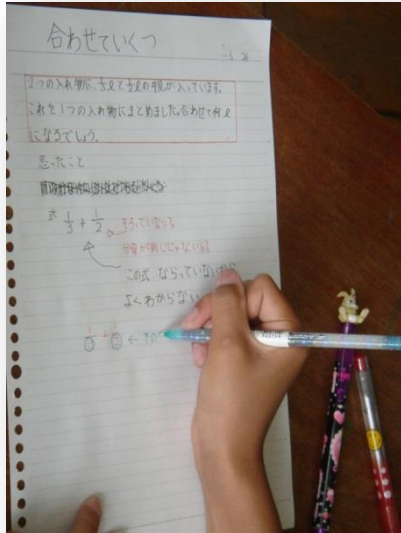 合わせていくつ
2つの入れ物に、1/3ℓと1/2ℓの が入っています。
これを1つの入れ物にまとめました。合わせて何ℓ
になるでしょう。
思ったこと
式 1/3 + 1/2
そろっていない
分母が同じじゃない
この式 ならっていないから
よくわからない